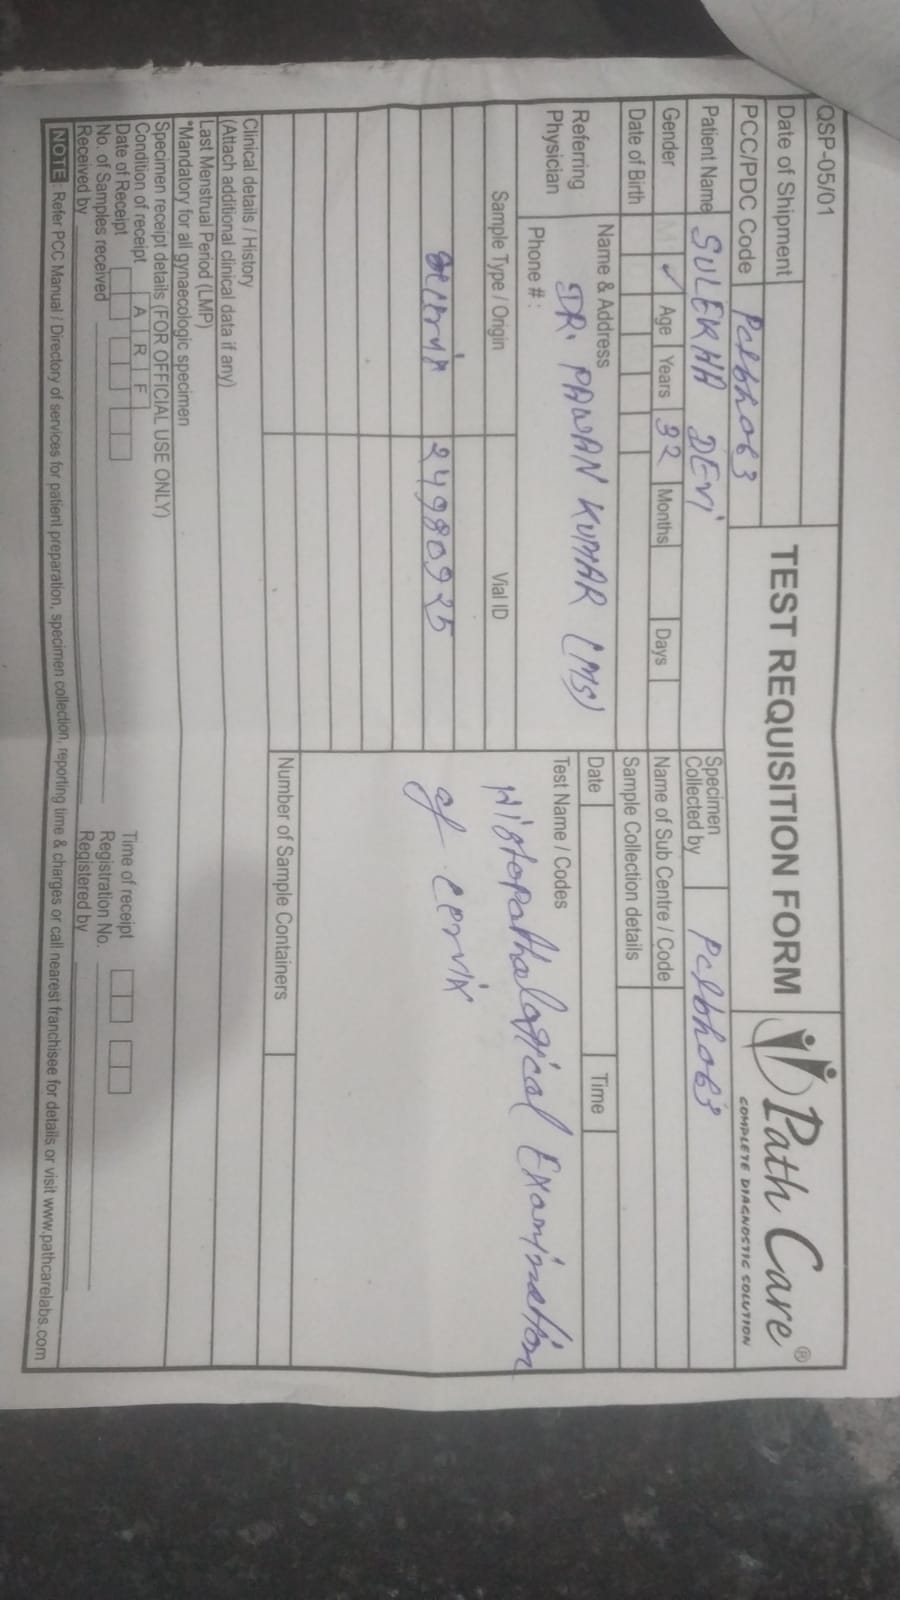 QSP-05/01
Date of Shipment
TEST REQUISITION FORM
Path Care®
COMPLETE DIAGNOSTIC SOLUTION
PCC/PDC Code Pclbh063
Patient Name SULEKHA DEVI
Specimen Collected by Pclbh063
Gender M ✓ Age Years 32 Months Days
Name of Sub Centre / Code
Date of Birth
Sample Collection details
Referring Physician
Name & Address
DR. PAWAN KUMAR (MS)
Phone # :
Date Time
Test Name / Codes
Histopathalogical Examination
of cervix
Sample Type / Origin Vial ID
24980925
Number of Sample Containers
Clinical details / History
(Attach additional clinical data if any)
Last Menstrual Period (LMP)
*Mandatory for all gynaecologic specimen
Specimen receipt details (FOR OFFICIAL USE ONLY)
Condition of receipt A R F
Date of Receipt Time of receipt
No. of Samples received Registration No.
Received by Registered by
NOTE : Refer PCC Manual / Directory of services for patient preparation, specimen collection, reporting time & charges or call nearest franchisee for details or visit www.pathcarelabs.com